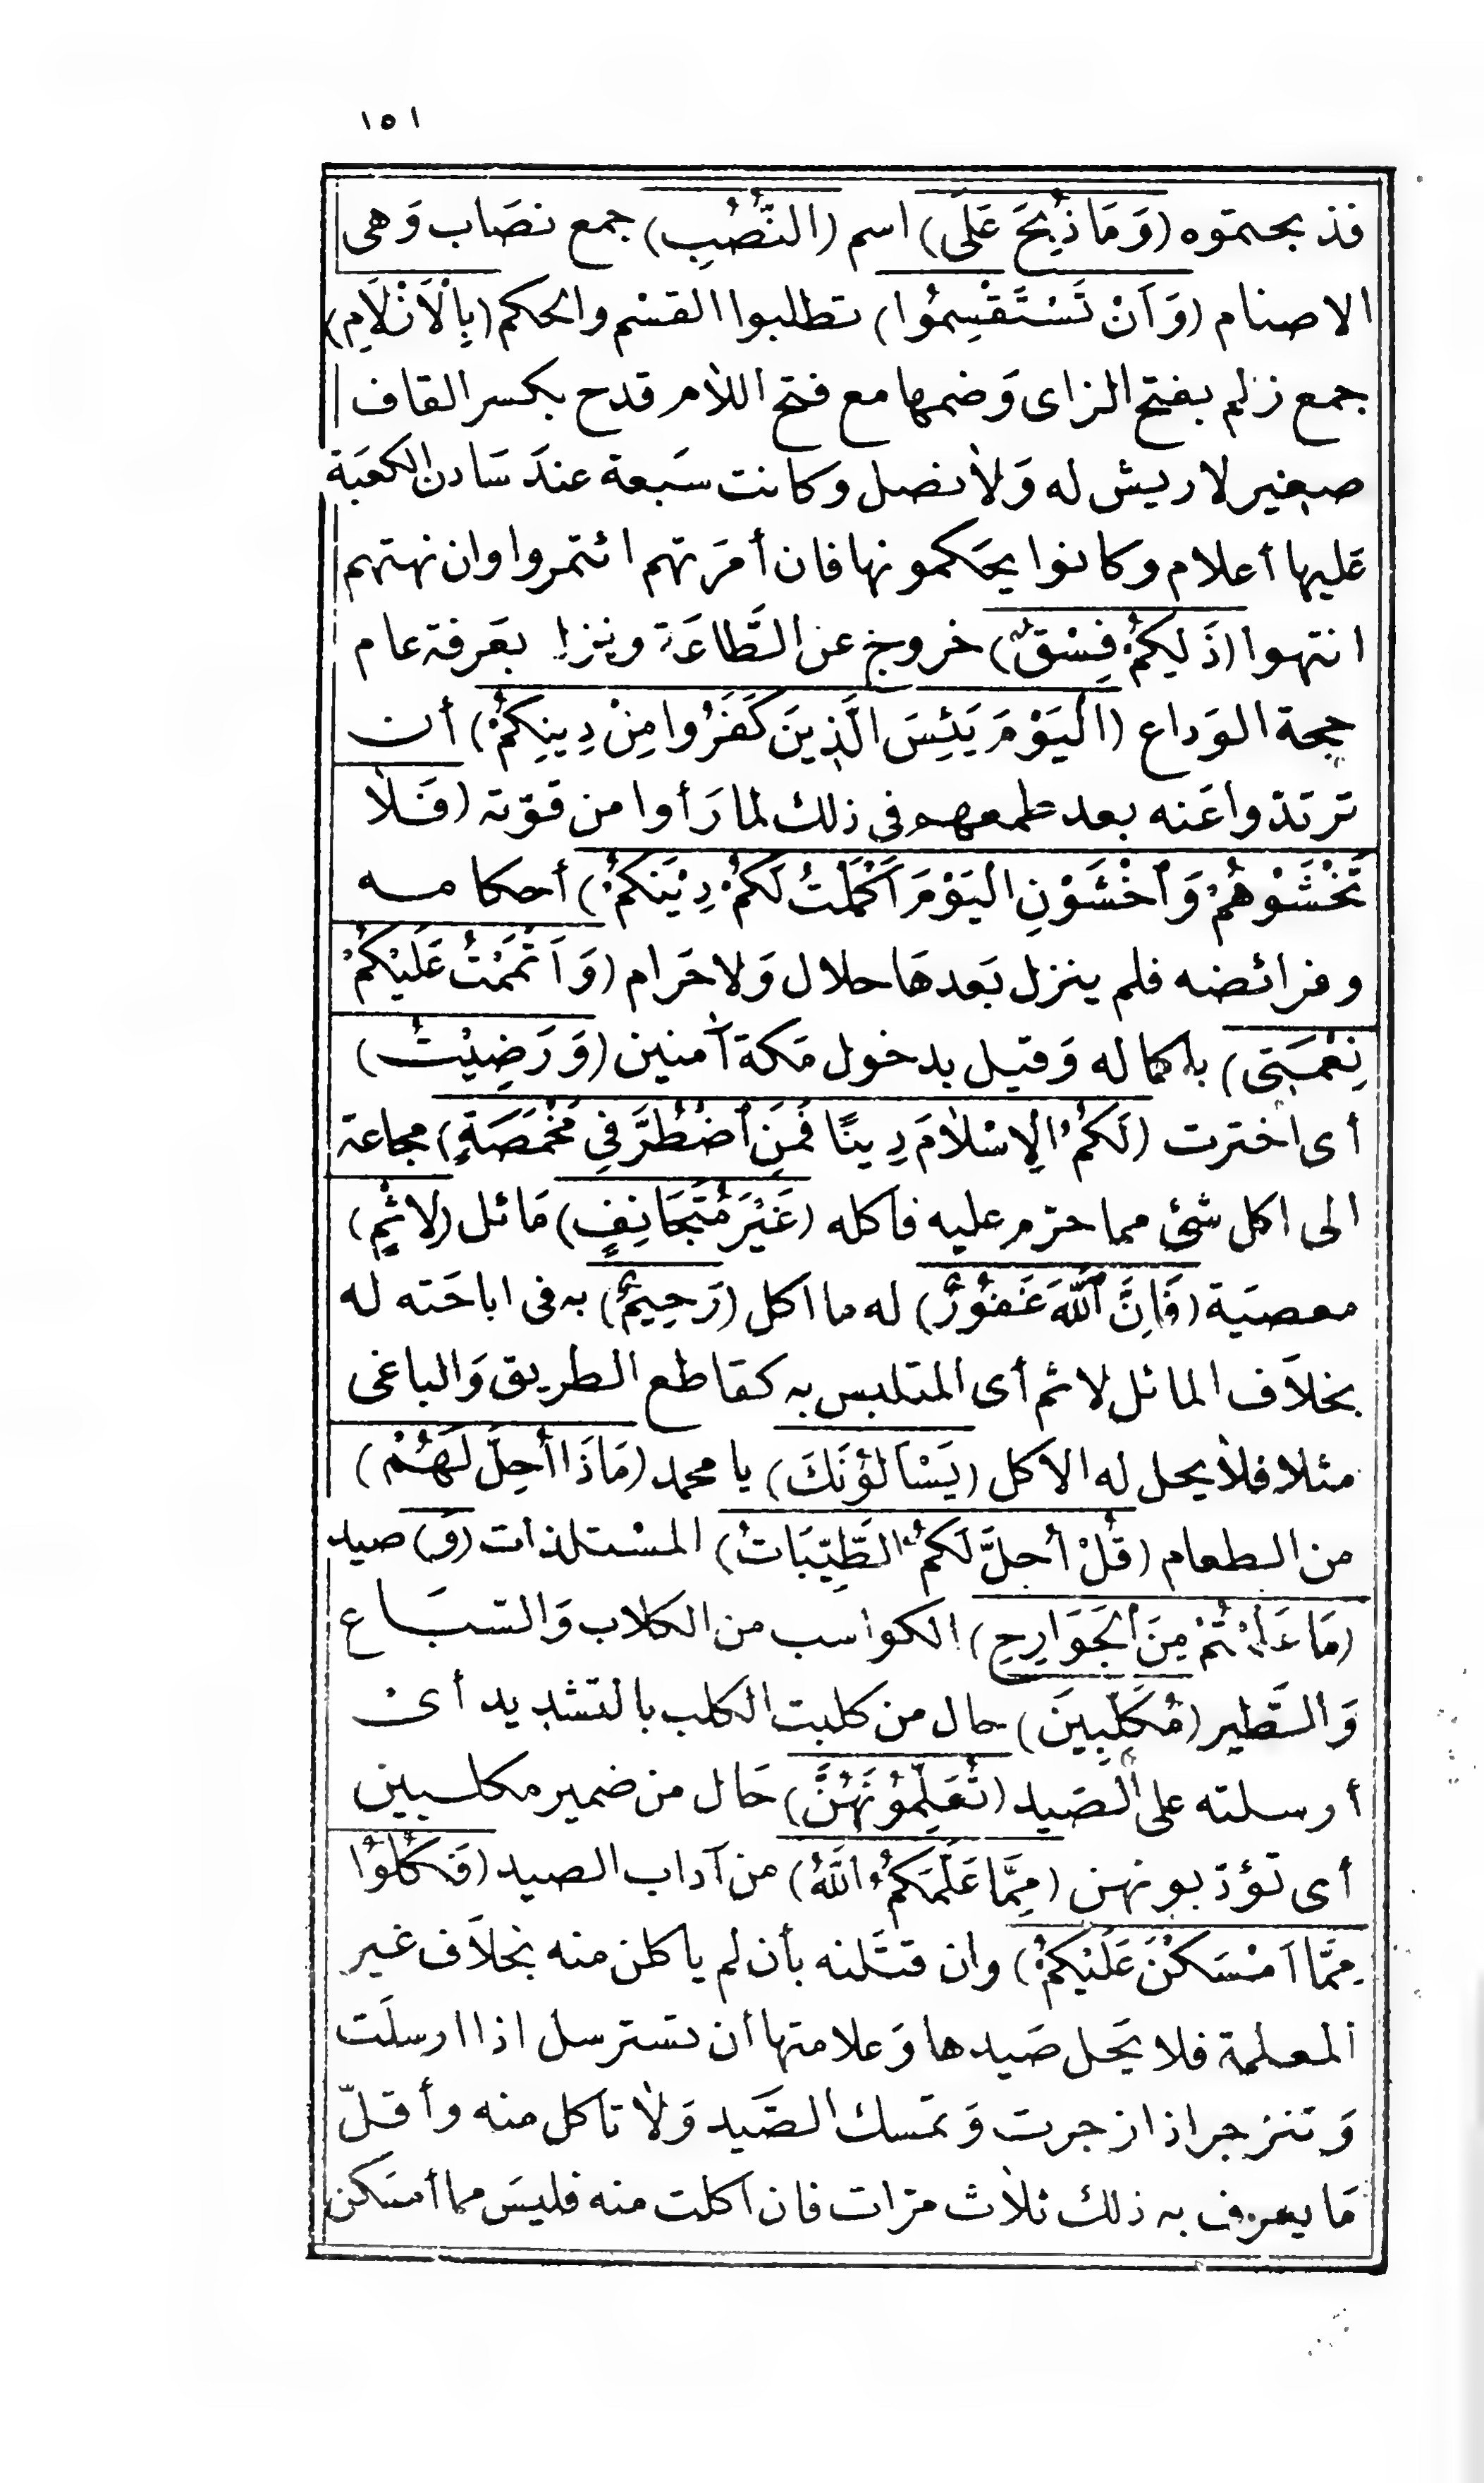 ١٥١
فذبحتموه (وَمَا ذُبِحَ عَلَى) اسم (النُّصُبِ) جمع نصَاب وَهى
الاصنام (وَاَنْ تَسْتَقْسِمُوا) تطلبوا القسْم والحكم (بِالْاَزْلَامِ)
جمع زلم بفتح الزاى وَضمها مع فتح اللام قدح بكسر القاف
صغير لا ريش له وَلا نصل وكانت سَبعة عندَ سَادن الكعبَة
عَليها أعلام وكانوا يحَكمونها فان أمَرَتهم ائتمروا وان نهتهم
انتهوا (ذَلِكُمْ فِسْقٌ) خروج عن الطَّاعَة ونزل بعَرفة عام
حجة الوَداع (الْيَوْمَ يَئِسَ الَّذِينَ كَفَرُوا مِنْ دِينِكُمْ) أن
ترتدّوا عَنه بعد طمعهم فى ذلك لما رَأوا من قوّته (فَلَا
تَخْشَوْهُمْ وَاخْشَوْنِ الْيَوْمَ اَكْمَلْتُ لَكُمْ دِيْنَكُمْ) أحكامه
وفرائضه فلم ينزل بَعدهَا حلال وَلا حَرام (وَاَتْمَمْتُ عَلَيْكُمْ
نِعْمَتِى) باكماله وَقيل بدخول مَكة آمنين (وَرَضِيْتُ)
أى اخترت (لَكُمُ الْإِسْلَامَ دِينًا فَمَنِ اضْطُرَّ فِى مَخْمَصَةٍ) مجاعة
الى اكل شئ مما حرّم عليه فأكله (غَيْرَ مُتَجَانِفٍ) مَائل (لِاثْمٍ)
معصيَة (فَاِنَّ اللَّهَ غَفُوْرٌ) له ما اكل (رَحِيمٌ) به فى اباحَته له
بخلاَف المائل لاثم أى المتلبس به كقاطع الطريق وَالباغى
مثلا فلا يحل له الأكل (يَسْاَلُوْنَكَ) يا محمد (مَاذَا أُحِلَّ لَهُمْ)
من الطعام (قُلْ أُحِلَّ لَكُمُ الطَّيِّبَاتُ) المسْتلذات (وَ) صيد
(مَا عَلَّمْتُمْ مِنَ الْجَوَارِحِ) الكواسب من الكلاب وَالسّبَاع
وَالطَّير (مُكَلِّبِينَ) حال من كلبت الكلب بالتشديد أى
أرسلته على الصَيد (تُعَلِّمُوْنَهُنَّ) حَال من ضمير مكلبين
أى تؤدّبونهن (مِمَّا عَلَّمَكُمُ اللَّهُ) من آداب الصيد (فَكُلُوْا
مِمَّا اَمْسَكْنَ عَلَيْكُمْ) وان قتَلنه بأن لم ياكلن منه بخلاَف غير
المعلمة فلا يَحل صَيدها وَعلامتها أن تسترسل اذا ارسلَت
وَتنزجر اذا زجرت وَتمسك الصَّيد وَلا تاكل منه وأقلّ
مَا يعرف به ذلك ثلاث مرّات فان اكلت منه فليسَ مما أمسَكن